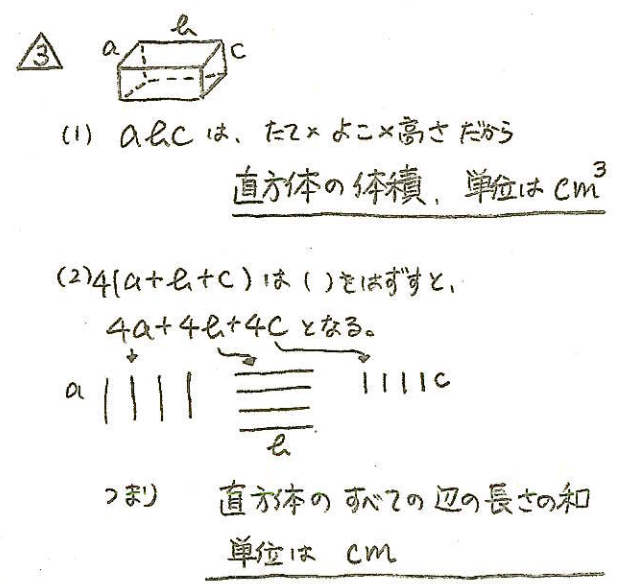 3
a b c
(1) abc は、たて×よこ×高さ だから
直方体の体積、単位は cm³
(2) 4(a+b+c) は ( ) をはずすと、
4a+4b+4c となる。
a c
b
つまり 直方体の すべての 辺の長さの和
単位は cm